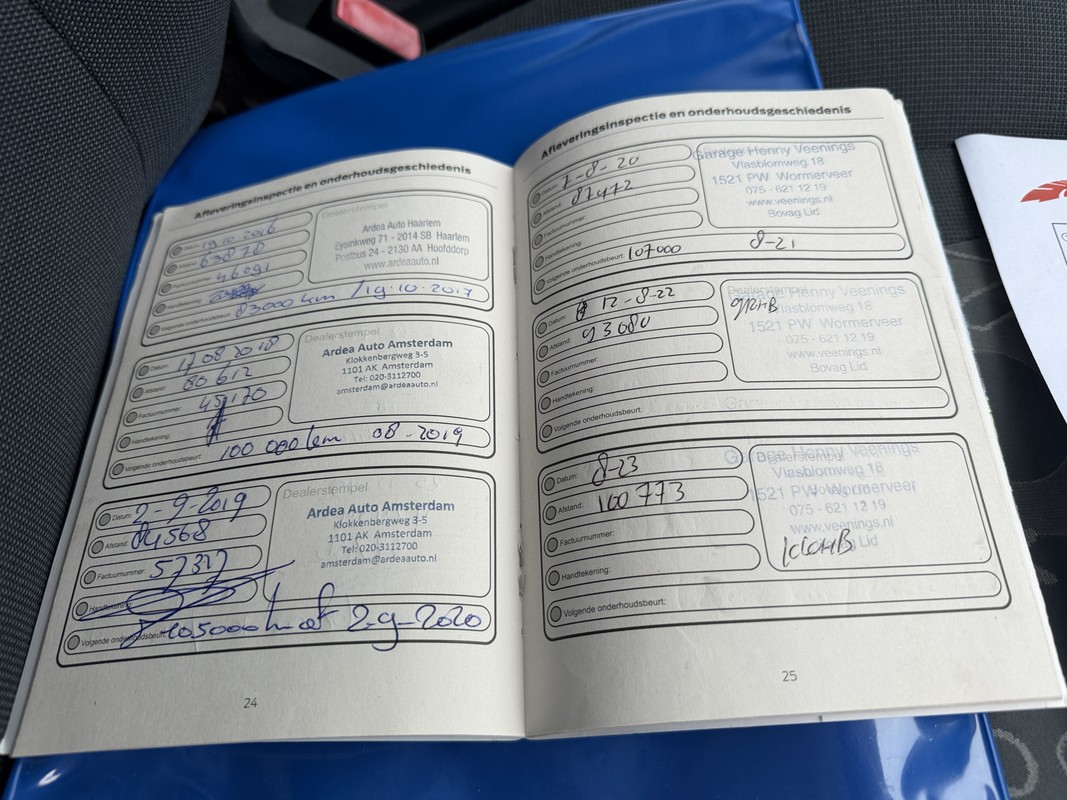 Afleveringsinspectie en onderhoudsgeschiedenis
Datum: 19.10.2016
63878
46091
Volgende onderhoudsbeurt: 83000 km / 19.10.2017
Dealerstempel
Ardea Auto Haarlem
Eysinkweg 71 - 2014 SB Haarlem
Postbus 24 - 2130 AA Hoofddorp
www.ardeaauto.nl
Datum: 17 08 2018
Afstand: 80 612
Factuurnummer: 45170
Handtekening:
Volgende onderhoudsbeurt: 100 000 km 08-2019
Dealerstempel
Ardea Auto Amsterdam
Klokkenbergweg 3-5
1101 AK Amsterdam
Tel: 020-3112700
amsterdam@ardeaauto.nl
Datum: 2-9-2019
Afstand: 84568
Factuurnummer: 57377
Handtekening:
Volgende onderhoudsbeurt: 105000 km of 2-9-2020
Dealerstempel
Ardea Auto Amsterdam
Klokkenbergweg 3-5
1101 AK Amsterdam
Tel: 020-3112700
amsterdam@ardeaauto.nl
24
Afleveringsinspectie en onderhoudsgeschiedenis
Datum: 7-8-20
Afstand: 87472
Factuurnummer:
Handtekening:
Volgende onderhoudsbeurt: 107000 8-21
Garage Henny Veenings
Vlasblomweg 18
1521 PW Wormerveer
075 - 621 12 19
www.veenings.nl
Bovag Lid
Datum: 12-8-22
Afstand: 93080
Factuurnummer:
Handtekening:
Volgende onderhoudsbeurt:
Dealerstempel
Garage Henny Veenings
Vlasblomweg 18
1521 PW Wormerveer
075 - 621 12 19
www.veenings.nl
Bovag Lid
Datum: 8-23
Afstand: 100773
Factuurnummer:
Handtekening:
Volgende onderhoudsbeurt:
Dealerstempel
Garage Henny Veenings
Vlasblomweg 18
1521 PW Wormerveer
075 - 621 12 19
www.veenings.nl
Bovag Lid
25